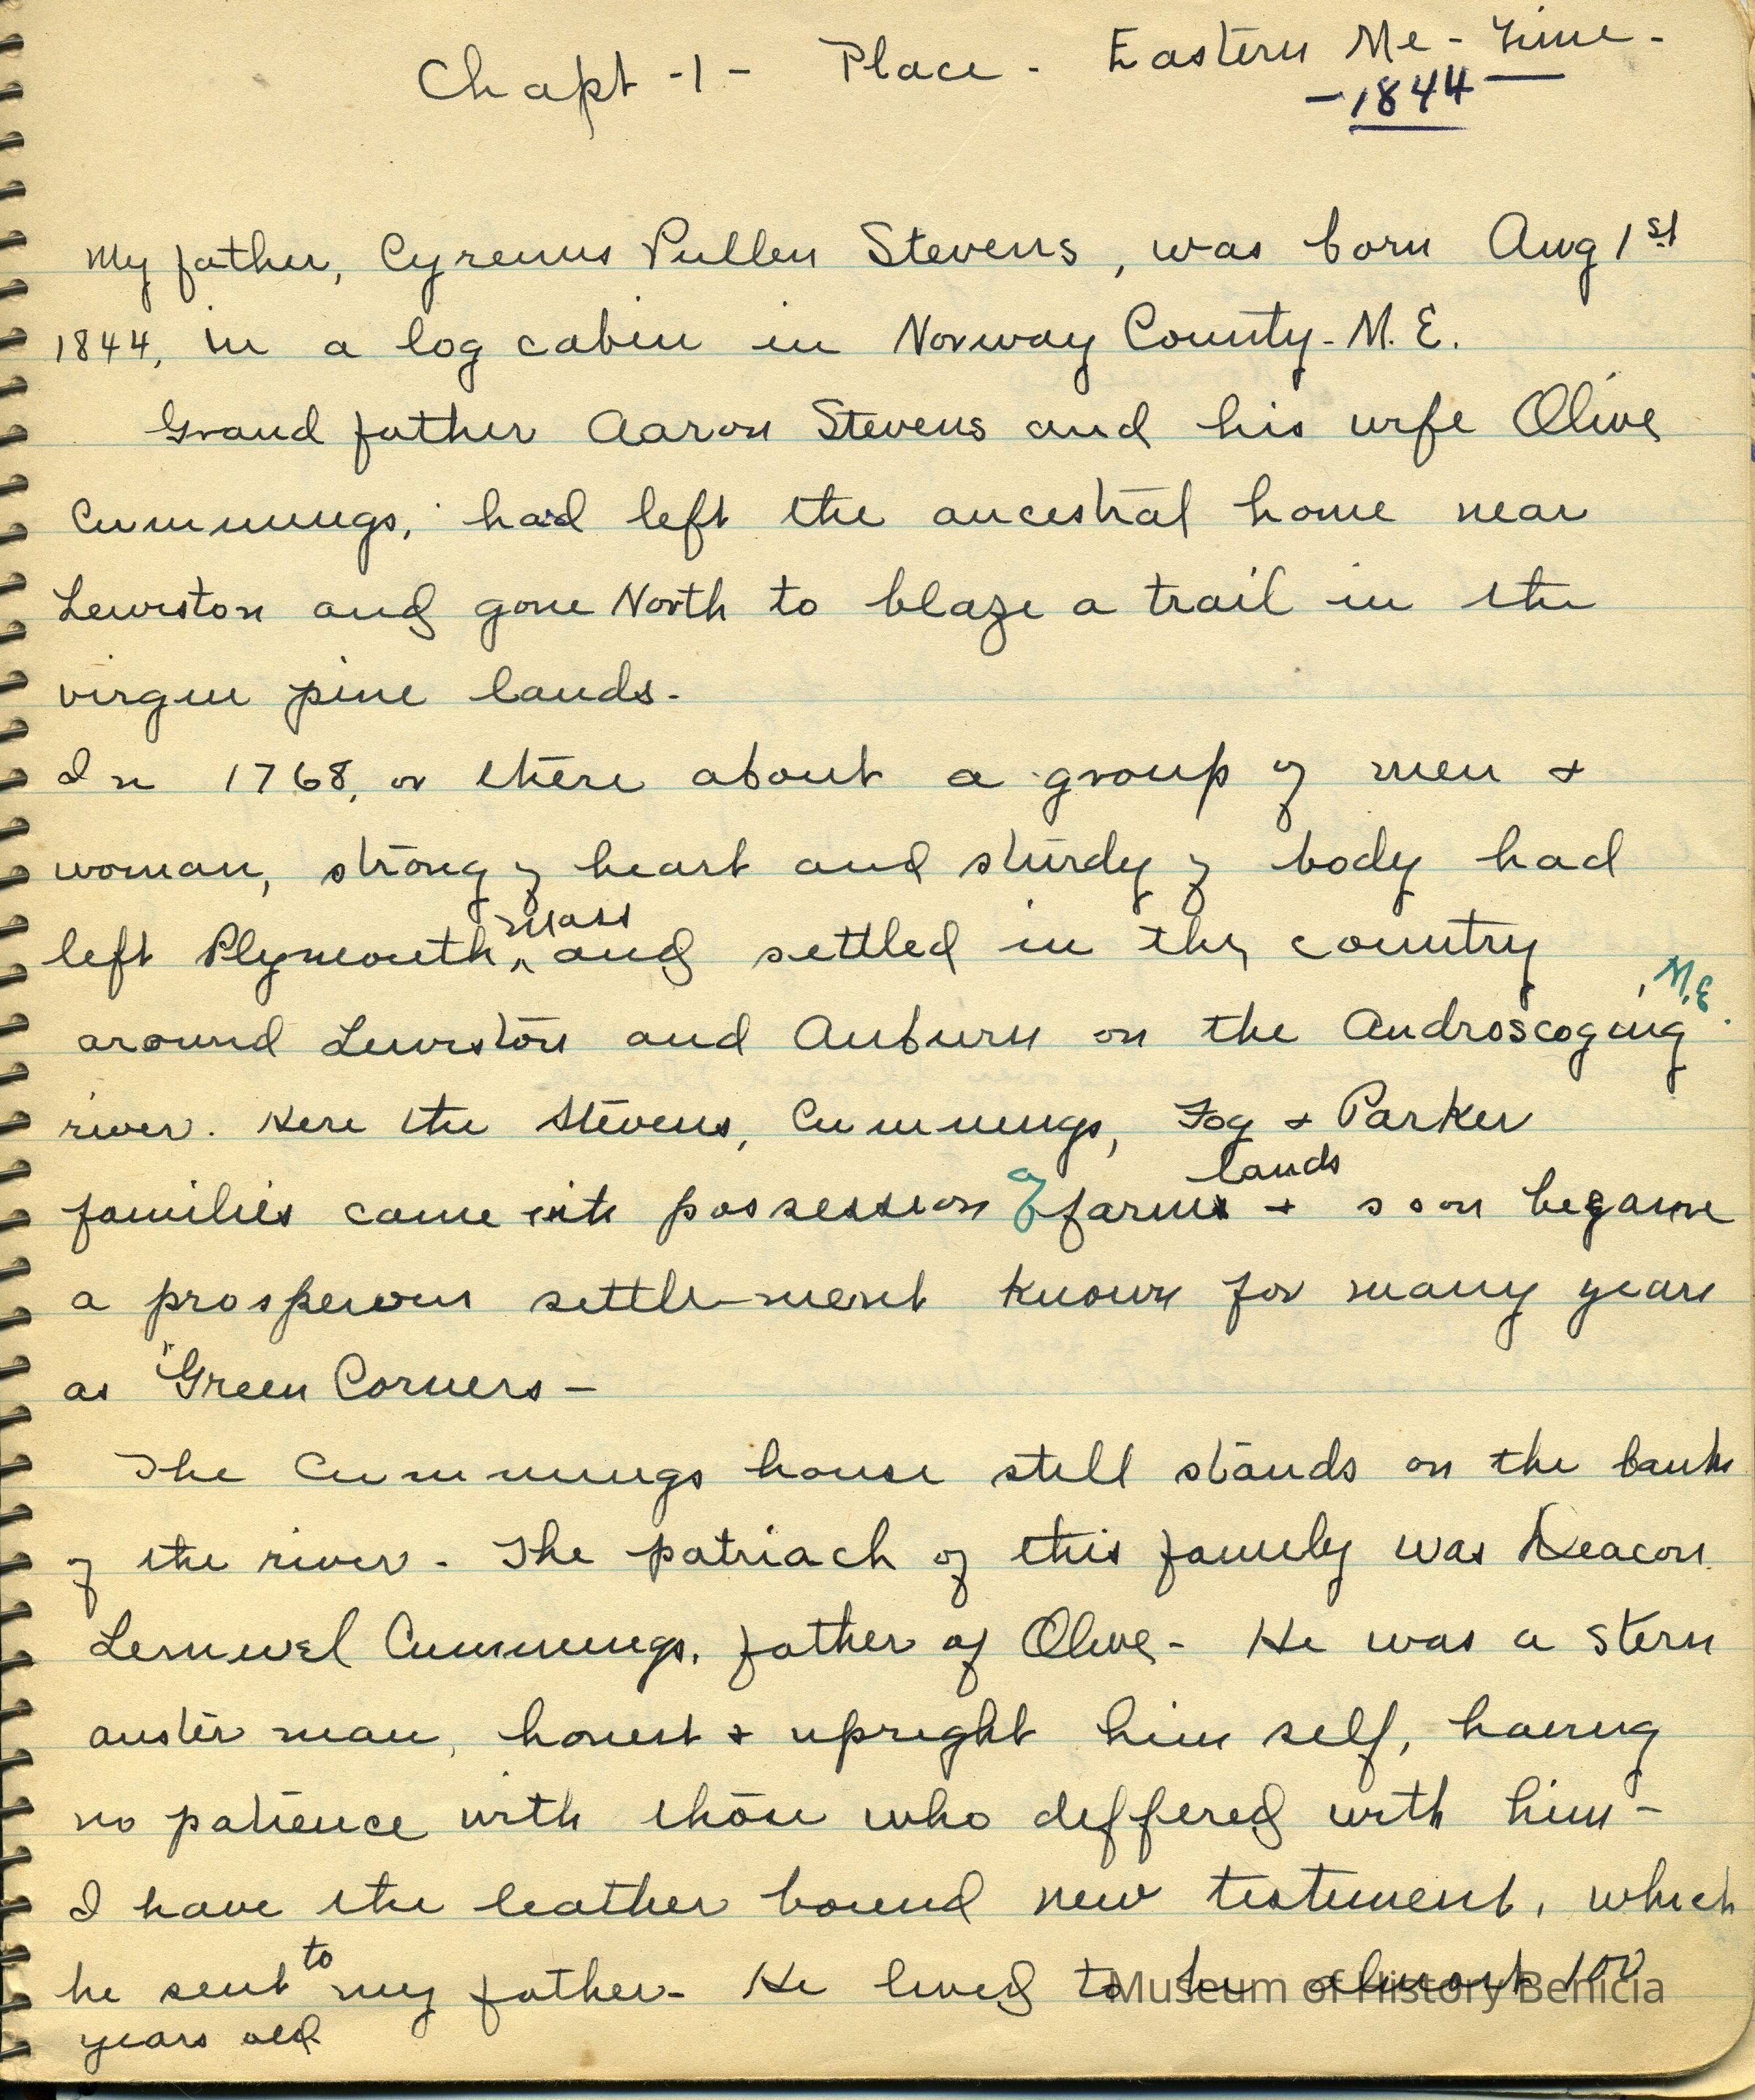 Chapt -1- Place - Eastern Me - Time -
- 1844
My father, Cyrenus Pullen Stevens, was born Aug 1st
1844, in a log cabin in Norway County - M.E.
Grand father Aaron Stevens and his wife Olive
Cummings, had left the ancestral home near
Lewiston and gone North to blaze a trail in the
virgin pine lands.
In 1768, or there about a group of men +
woman, strong of heart and sturdy of body had
left Plymouth, ^ mass and settled in the country
around Lewiston and Auburn on the Androscoging, M.E.
river. Here the Stevens, Cummings, Fog + Parker
families came into possession of farm lands + soon became
a prosperous settle-ment known for many years
as "Green Corners -
The Cummings house still stands on the bank
of the river - The patriach of this family was Deacon
Lemuel Cummings, father of Olive - He was a stern
auster man, honest + upright him self, having
no patience with those who deffered with him -
I have the leather bound new testiment, which
he sent to my father - He lived to be almost 100
years old.
Museum of History Benicia